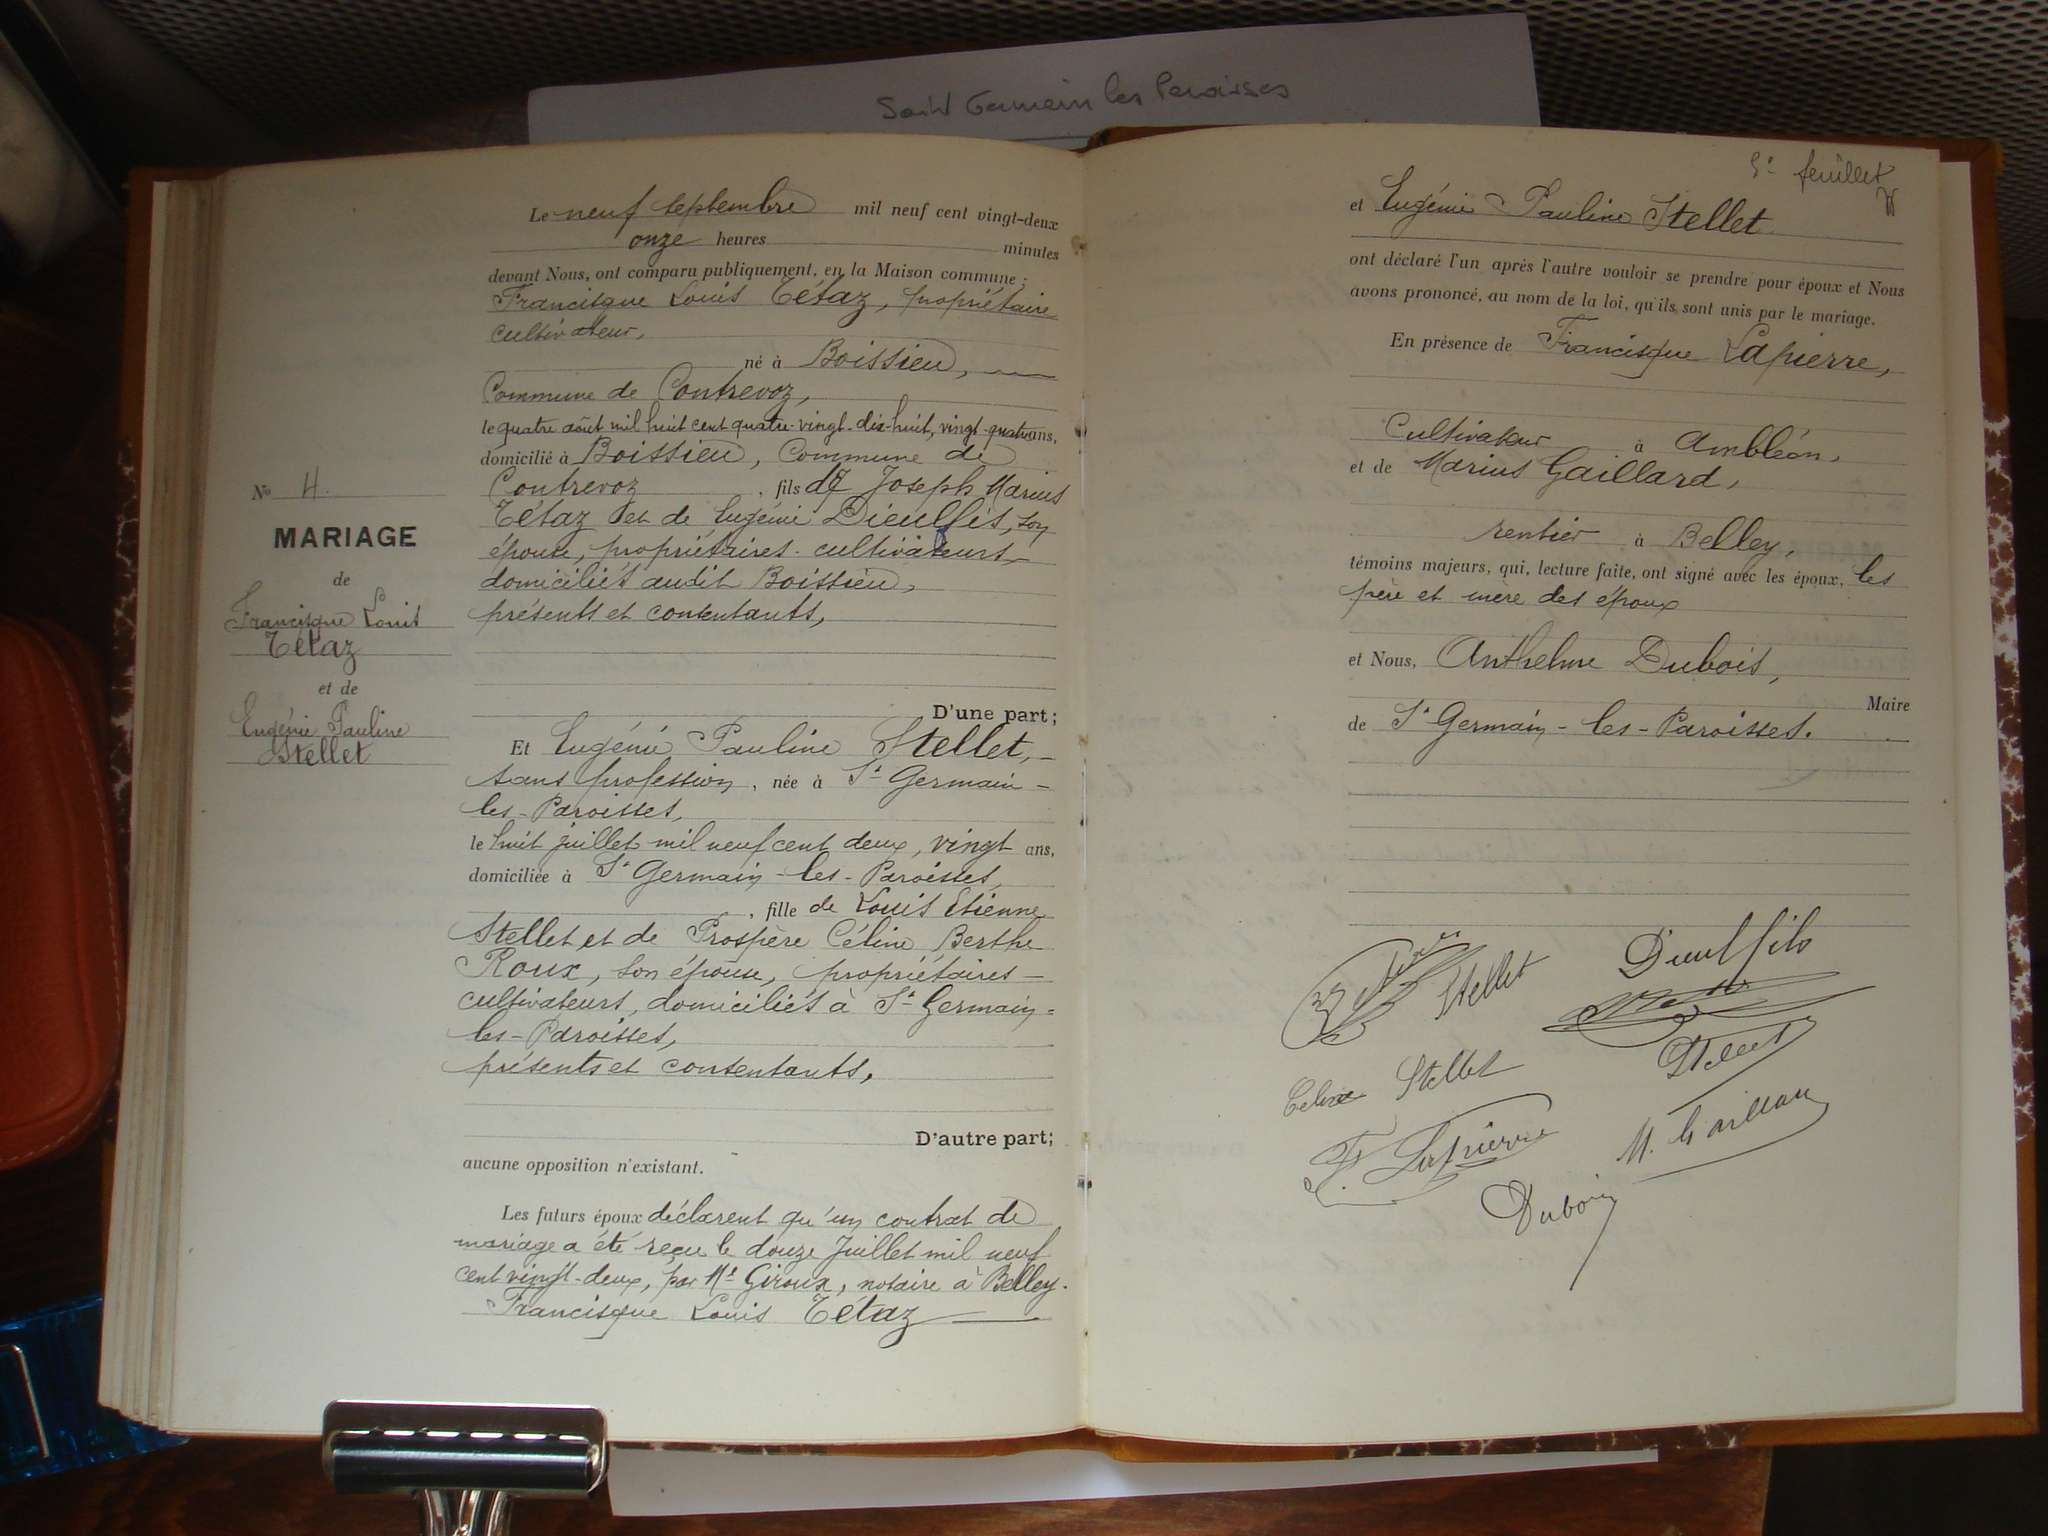 Saint Germain les Paroisses
Le neuf septembre mil neuf cent vingt-deux
onze heures minutes
devant Nous, ont comparu publiquement, en la Maison commune :
Francisque Louis Tétaz, propriétaire
cultivateur,
né à Boissieu,
Commune de Contrevoz,
le quatre août mil huit cent quatre-vingt-dix-huit, vingt-quatre ans,
domicilié à Boissieu, Commune de
Contrevoz, fils de Joseph Marius
Tétaz et de Eugénie Dieulfils, son
épouse, propriétaires-cultivateurs,
domiciliés audit Boissieu,
présents et consentants,
D'une part;
No 4.
MARIAGE
de
Francisque Louis
Tétaz
et de
Eugénie Pauline
Stellet
Et Eugénie Pauline Stellet,
sans profession, née à St Germain-
les-Paroisses,
le huit juillet mil neuf cent deux, vingt ans,
domiciliée à St Germain-les-Paroisses,
, fille de Louis Etienne
Stellet et de Prospère Céline Berthe
Roux, son épouse, propriétaires-
cultivateurs, domiciliés à St Germain-
les-Paroisses,
présents et consentants,
D'autre part;
aucune opposition n'existant.
Les futurs époux déclarent qu'un contrat de
mariage a été reçu le douze Juillet mil neuf
cent vingt-deux, par Me Giroux, notaire à Belley.
Francisque Louis Tétaz
5e feuillet
et Eugénie Pauline Stellet
ont déclaré l'un après l'autre vouloir se prendre pour époux et Nous
avons prononcé, au nom de la loi, qu'ils sont unis par le mariage.
En présence de Francisque Lapierre,
Cultivateur à Ambléon,
et de Marius Gaillard,
rentier à Belley,
témoins majeurs, qui, lecture faite, ont signé avec les époux, les
père et mère des époux
et Nous, Anthelme Dubois,
Maire
de St Germain-les-Paroisses.
Stellet
Dieulfils
Stellet
Celine Stellet
F. Lapierre
M. Gaillard
Dubois